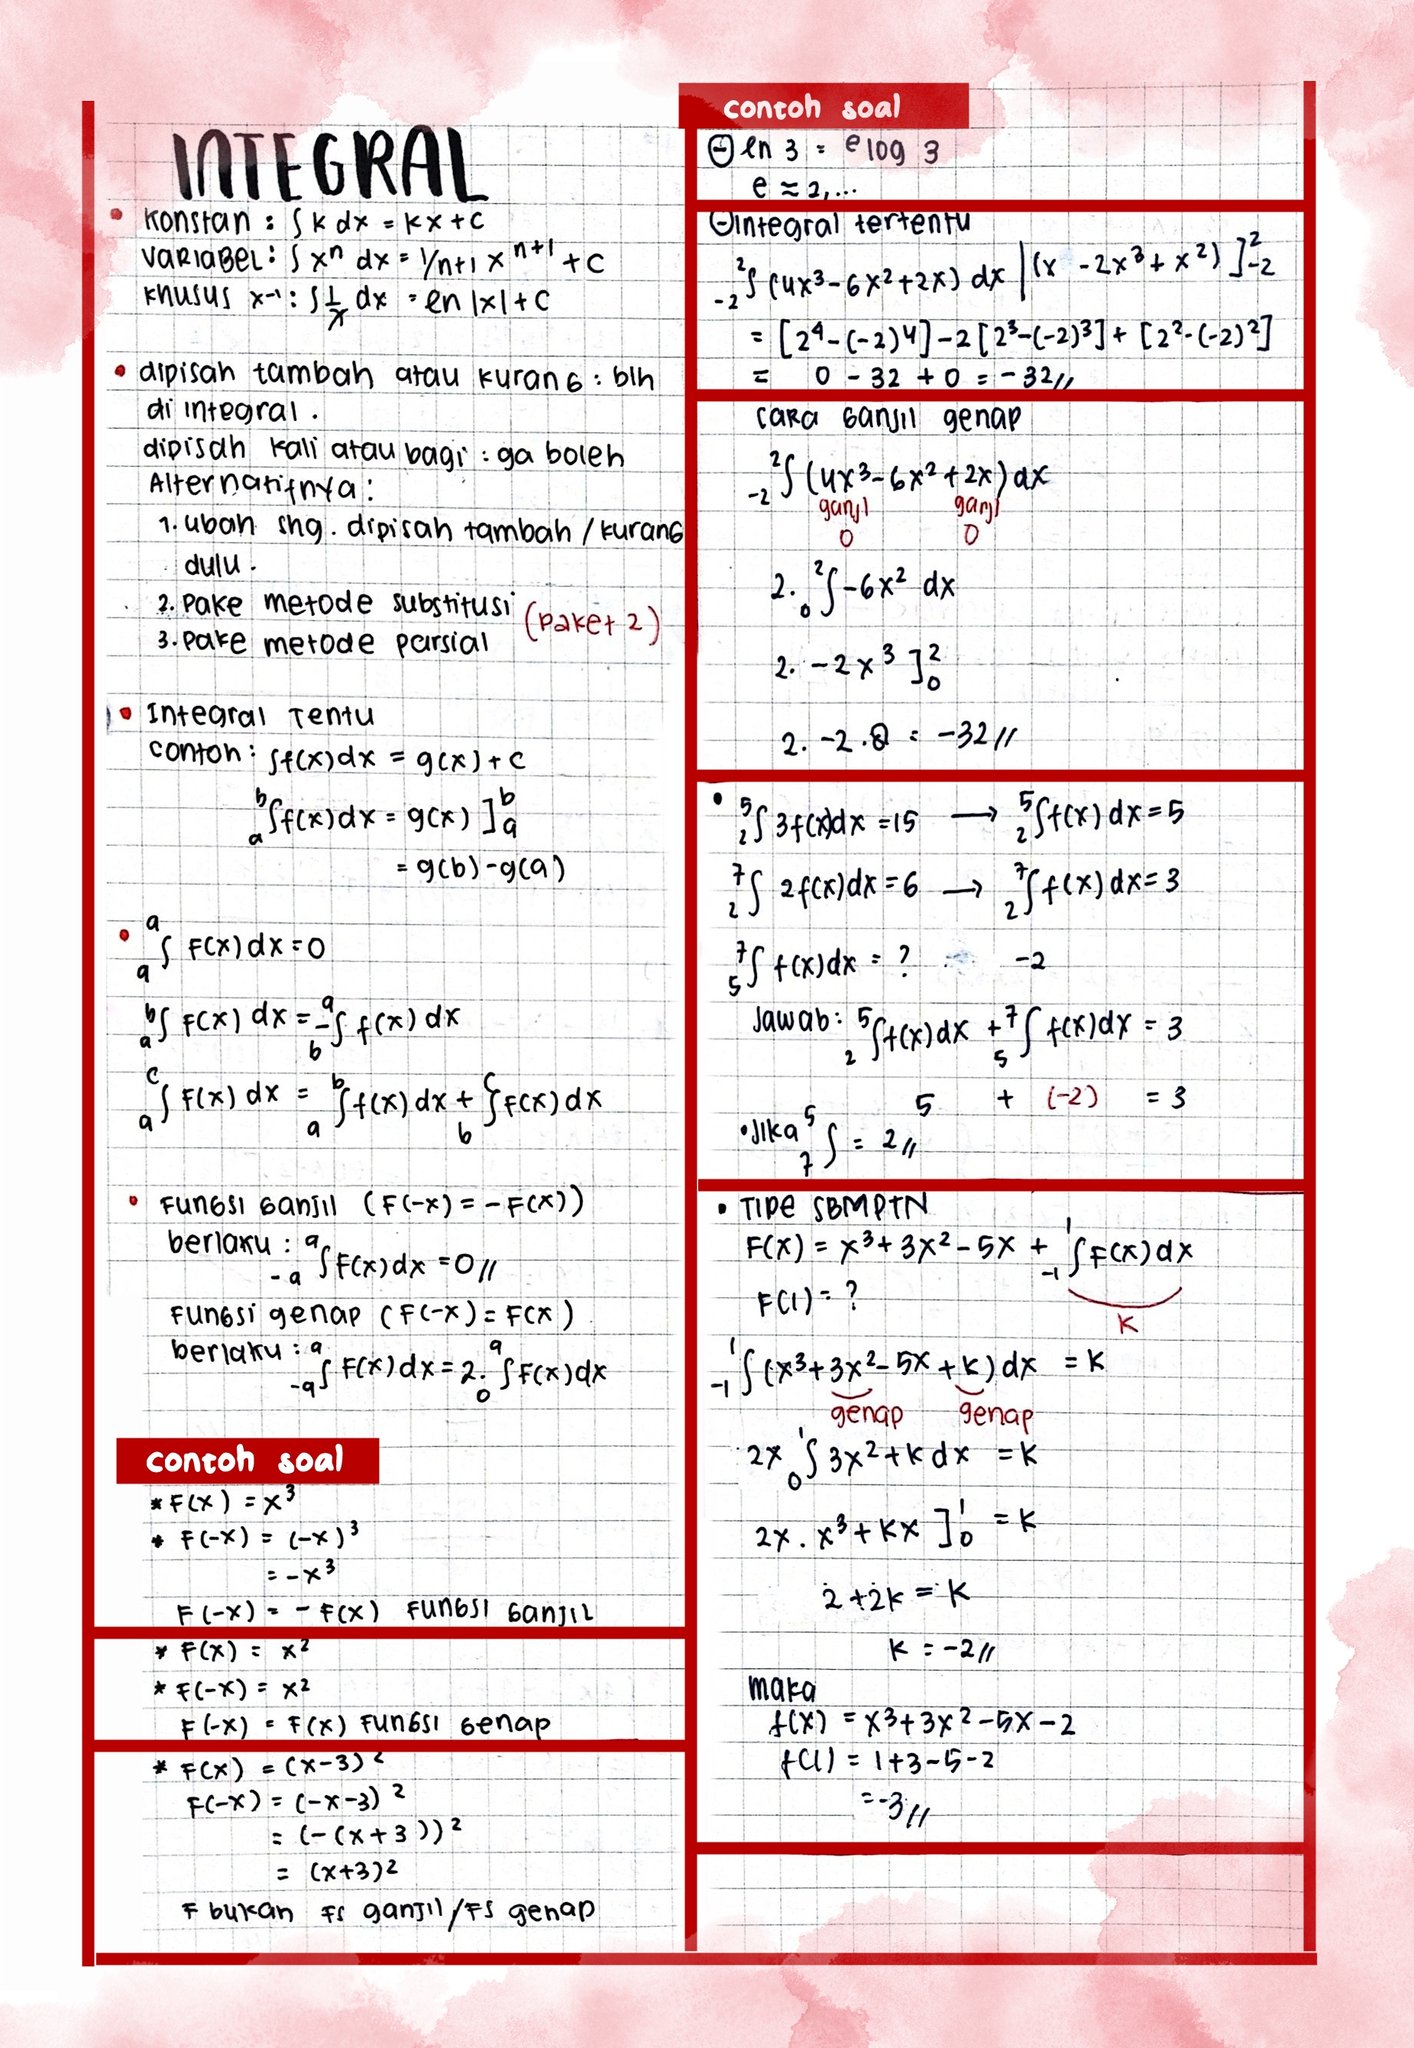 INTEGRAL
• Konstan : ∫ k dx = kx + c
VARIABEL : ∫ xⁿ dx = 1/n+1 x ⁿ⁺¹ + c
KHUSUS x⁻¹ : ∫ 1/x dx = en |x| + c
• dipisah tambah atau kurang : blh
di integral .
dipisah kali atau bagi : ga boleh
Alternatifnya :
1. ubah shg. dipisah tambah / kurang
dulu .
2. pake metode substitusi (paket 2)
3. pake metode parsial
• Integral Tentu
contoh : ∫f(x) dx = g(x) + c
ₐᵇ∫f(x) dx = g(x) ]ₐᵇ
= g(b) - g(a)
• ₐᵃ∫ F(x) dx = 0
ₐᵇ∫ F(x) dx = - bᵃ∫ f(x) dx
ₐᶜ∫ F(x) dx = ₐᵇ∫f(x) dx + bᶜ∫F(x) dx
• FUNGSI GANJIL (F(-x) = -F(x))
berlaku : -aᵃ∫F(x) dx = 0 //
FUNGSI genap (F(-x) = F(x)
berlaku : -aᵃ∫ F(x) dx = 2. ₀ᵃ∫F(x) dx
contoh soal
* F(x) = x³
* F(-x) = (-x)³
= -x³
F(-x) = - F(x) FUNGSI GANJIL
* F(x) = x²
* F(-x) = x²
F(-x) = F(x) FUNGSI Genap
* F(x) = (x-3)²
F(-x) = (-x-3)²
= (-(x+3))²
= (x+3)²
F bukan FS ganjil/FS genap
contoh soal
⊖ en 3 = ᵉlog 3
e ≈ 2,...
⊖ Integral tertentu
₋₂²∫ (4x³ - 6x² + 2x) dx | (x - 2x³ + x²) ]₋₂²
= [2⁴ - (-2)⁴] - 2 [2³ - (-2)³] + [2² - (-2)²]
= 0 - 32 + 0 = -32 //
cara Ganjil genap
₋₂²∫ (4x³ - 6x² + 2x) dx
ganjl ganjl
0 0
2. ₀²∫ -6x² dx
2. -2x³ ]₀²
2. -2 . 8 = -32 //
• ₂⁵∫ 3f(x)dx = 15 → ₂⁵∫f(x) dx = 5
₂⁷∫ 2f(x)dx = 6 → ₂⁷∫ f(x) dx = 3
₅⁷∫ f(x)dx = ? -2
Jawab : ₂⁵∫f(x) dx + ₅⁷∫ f(x)dx = 3
5 + (-2) = 3
• Jika ₇⁵∫ = 2 //
• TIPE SBMPTN
F(x) = x³ + 3x² - 5x + ₋₁¹∫F(x) dx
F(1) = ?
K
₋₁¹∫ (x³ + 3x² - 5x + k) dx = k
genap genap
2x ₀¹∫ 3x² + k dx = k
2x . x³ + kx ]₀¹ = k
2 + 2k = k
k = -2 //
maka
f(x) = x³ + 3x² - 5x - 2
f(1) = 1 + 3 - 5 - 2
= -3 //